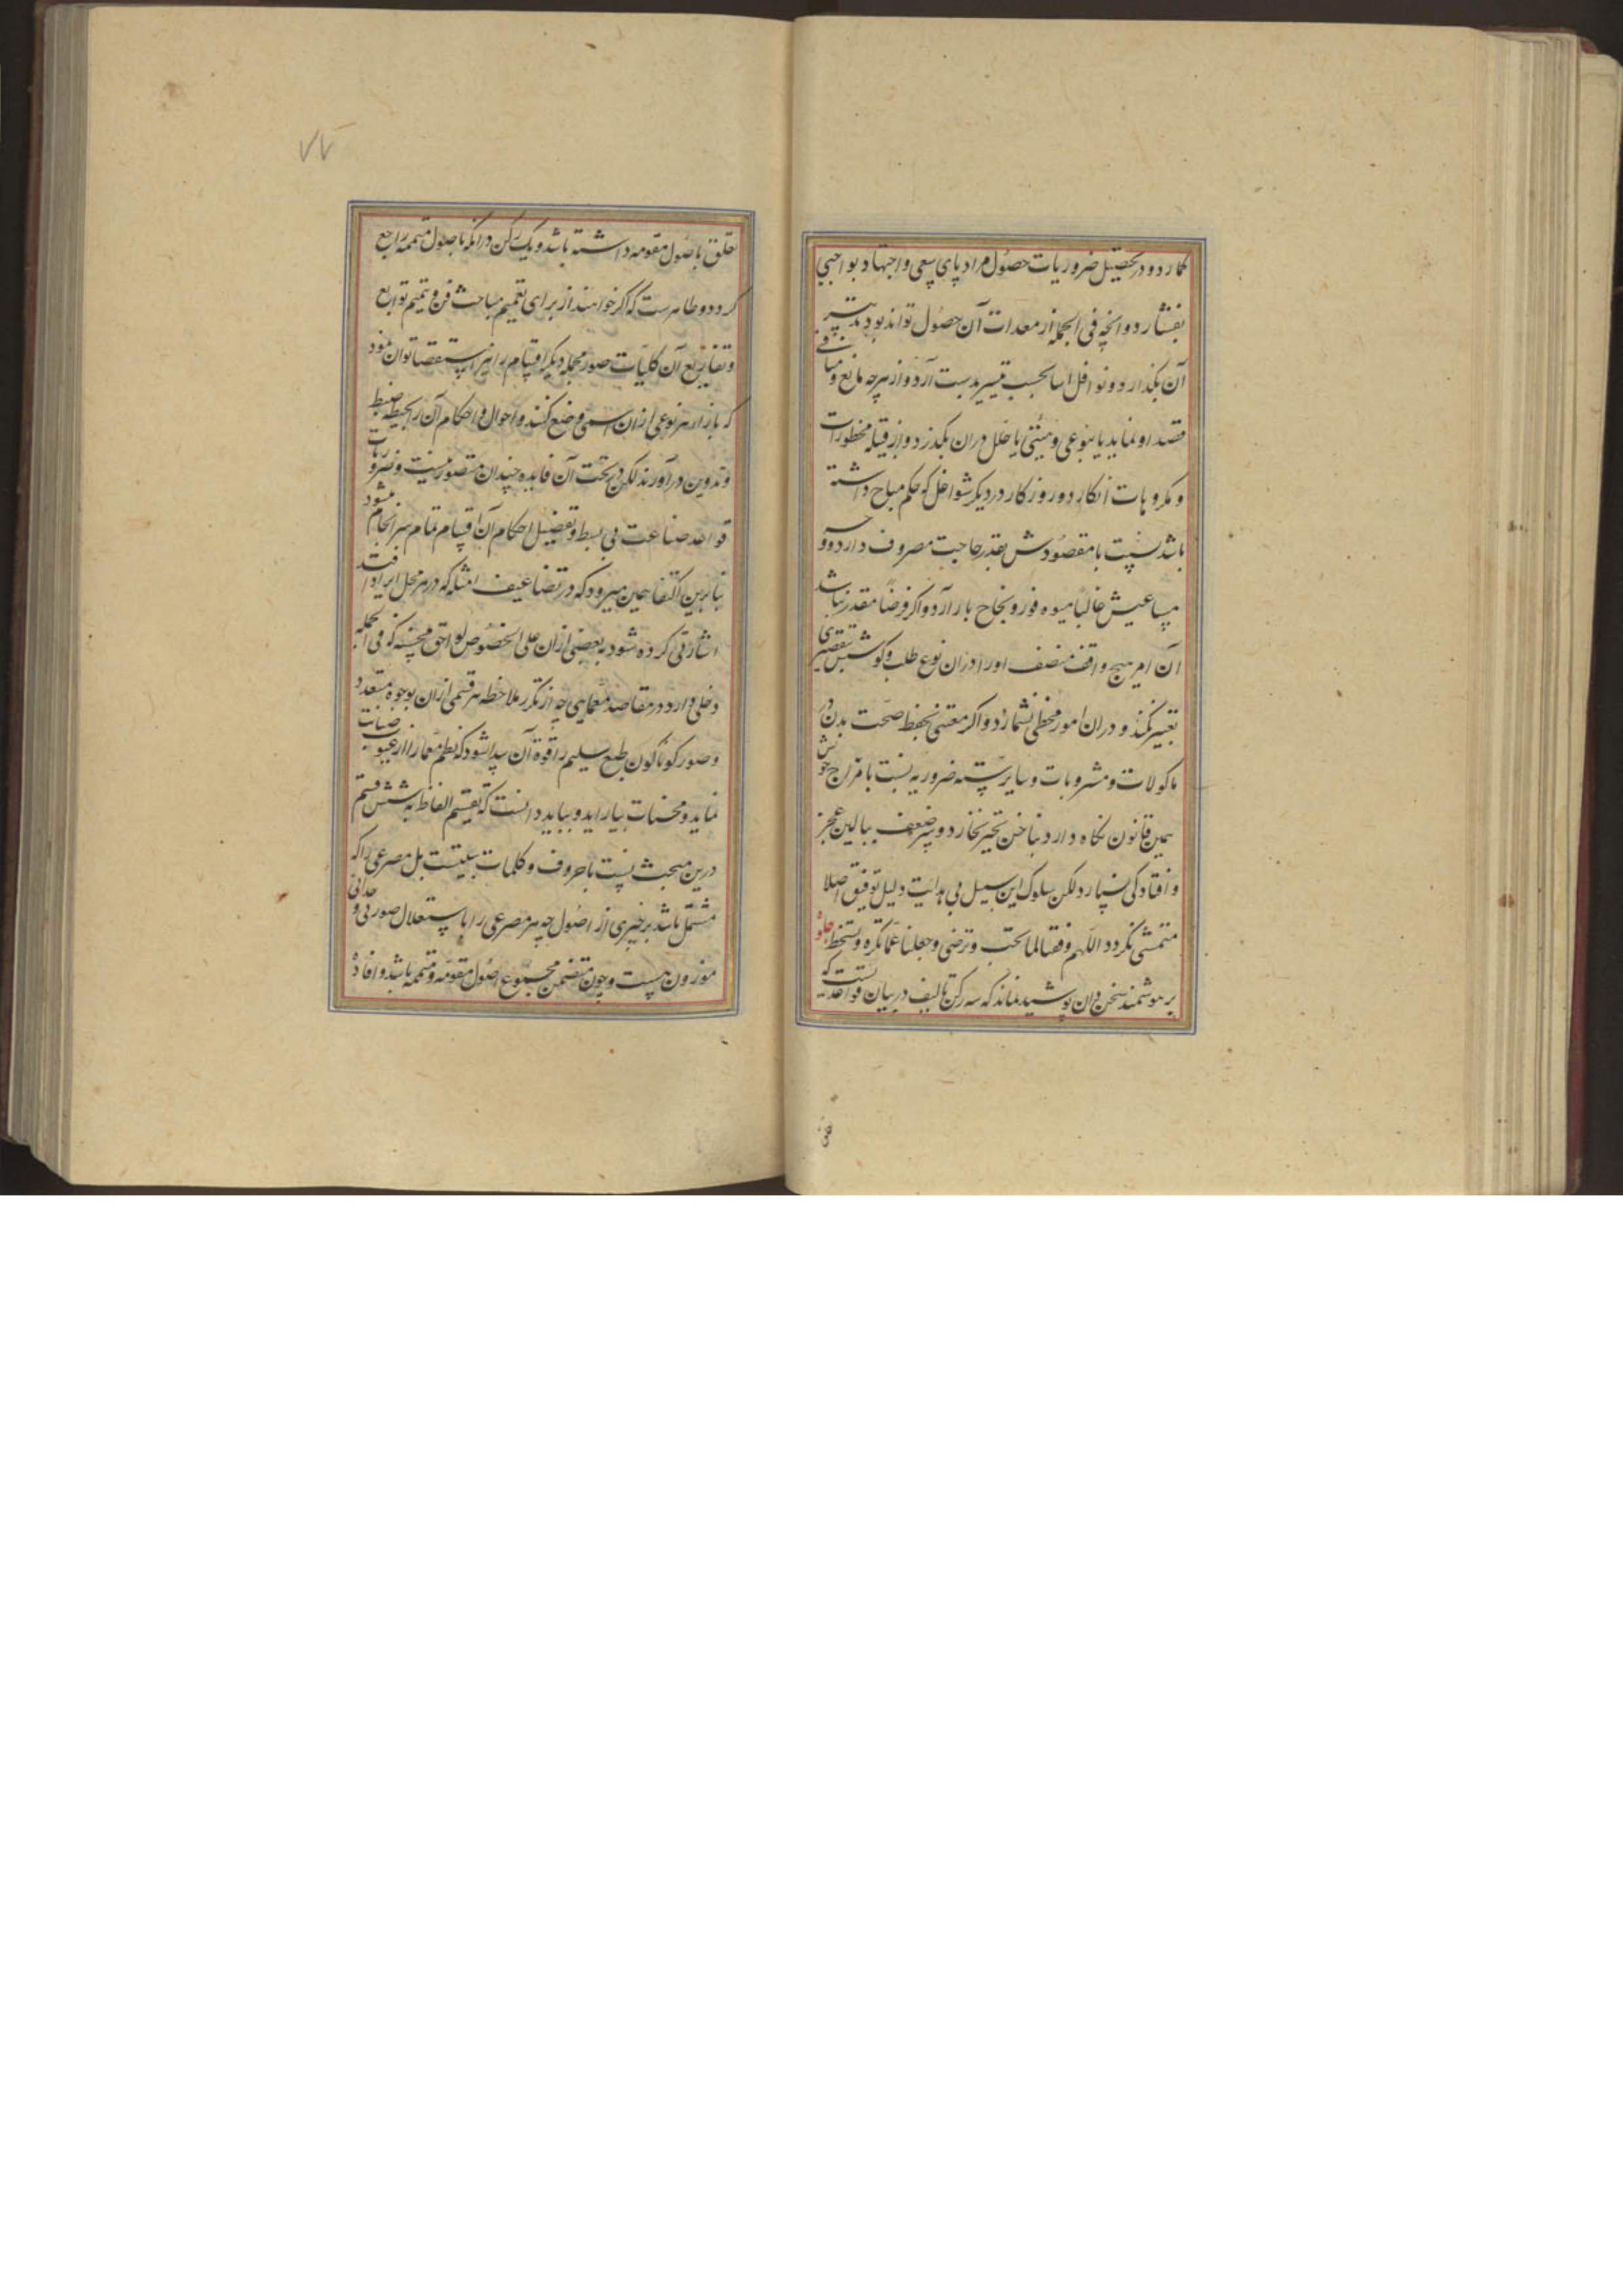 کمارد و در تحصیل ضروریات حصول مراد پای سعی و اجتهاد بواجبی
بفشارد و انچه فی الجمله از معدات آن حصول تواند بود بدست
آن بکذارد و نوافل اسا بحسب تیسیر بدست آرد و از هرچه مانع و منافی
قصد او نماید یا بنوعی و هیئتی یا خلل دران بکذرد و از قبیله محظورات
و مکروهات انکارد و روزکار در دیکر شواغل که حکم مباح داشته
باشد نسبت با مقصودش بقدر حاجت مصروف دارد و
مساعیش غالبا میوه فوز و نجاح بار آرد و اکر فرضا مقدر نباشد
آن امر هیچ واقف منصف او را دران نوع طلب و کوشش بتقصیری
تعییر نکند و دران امور مخطی نشمارد و اکر معتنی بحفظ صحت بدن در
ماکولات و مشروبات و سایر سته ضروریه نسبت با مزاج خوش
همین قانون نکاه دارد بناخن تحیر نخارد و سر ضعف ببالین عجز
و افتادکی نسپارد لکن سلوک این سبیل بی هدایت دلیل توفیق اصلا
متمشی نکردد اللهم وفقنا لما تحب و ترضی و جعلنا عما تکره و تسخط جلوه
بر هوشمند سخن دان پوشیده نماند که سه رکن تالیف در بیان قواعدیست که
۷۷
تعلق باصول مقومه داشته باشد و یک رکن درانکه باصول متممه راجع
کردد و ظاهرست که اکر خواهند از برای تعمیم مباحث فن و تتمیم توابع
و تفاریع آن کلیات صور مجمله دیکر اقسام را نیز استقصا توان نمود
که بازار هر نوعی ازان اسمی وضع کنند و احوال و احکام آن را بحیطه ضبط
و تدوین درآورند لکن در تحت آن فایده چندان متصور نیست و ضروریات
قواعد صناعت بی بسط و تفصیل احکام آن اقسام تمام سرانجام میشود
بنابرین اکتفا همین میرود که در تضاعیف امثله که در هر محل ایراد افتد
اشارتی کرده شود به بعضی ازان علی الخصوص لواحق محسنه که فی الجمله
دخلی دارد در مقاصد معمایی چه از تکرر ملاحظه هر قسمی ازان بوجوه متعدد
و صور کوناکون طبع سلیم را قوة آن پیدا شود که نظم معما را از عیوب صیانت
نماید و محسنات بیاراید و بباید دانست که تقسیم الفاظ به شش قسم
درین مبحث نسبت با حروف و کلمات بیتست بل مصرعی را که
مشتمل باشد بر خبری از اصول چه هر مصرعی را با ستقلال صورتی وحدانی
موزون هست و چون متضمن مجموع اصول مقومه و متممه باشد و افاده